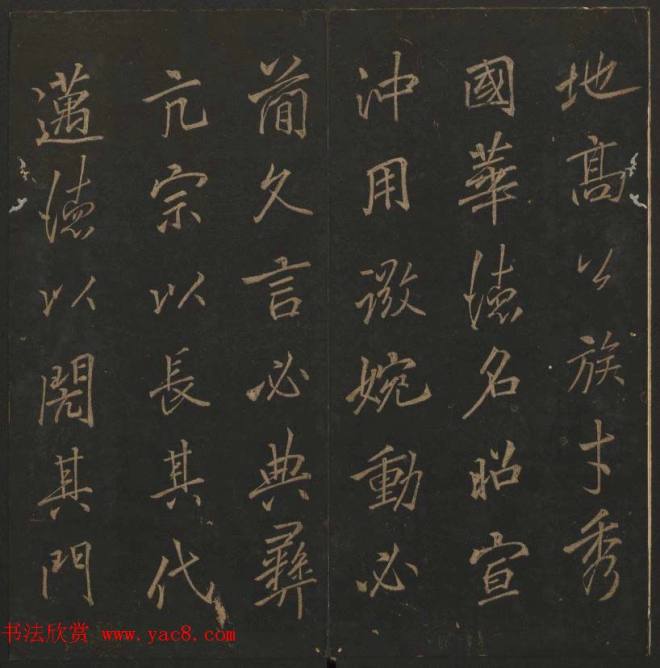 地高公族才秀
國華德名昭宣
沖用微婉動必
簡久言必典彝
亢宗以長其代
邁德以其門
书法欣赏 www.yac8.com